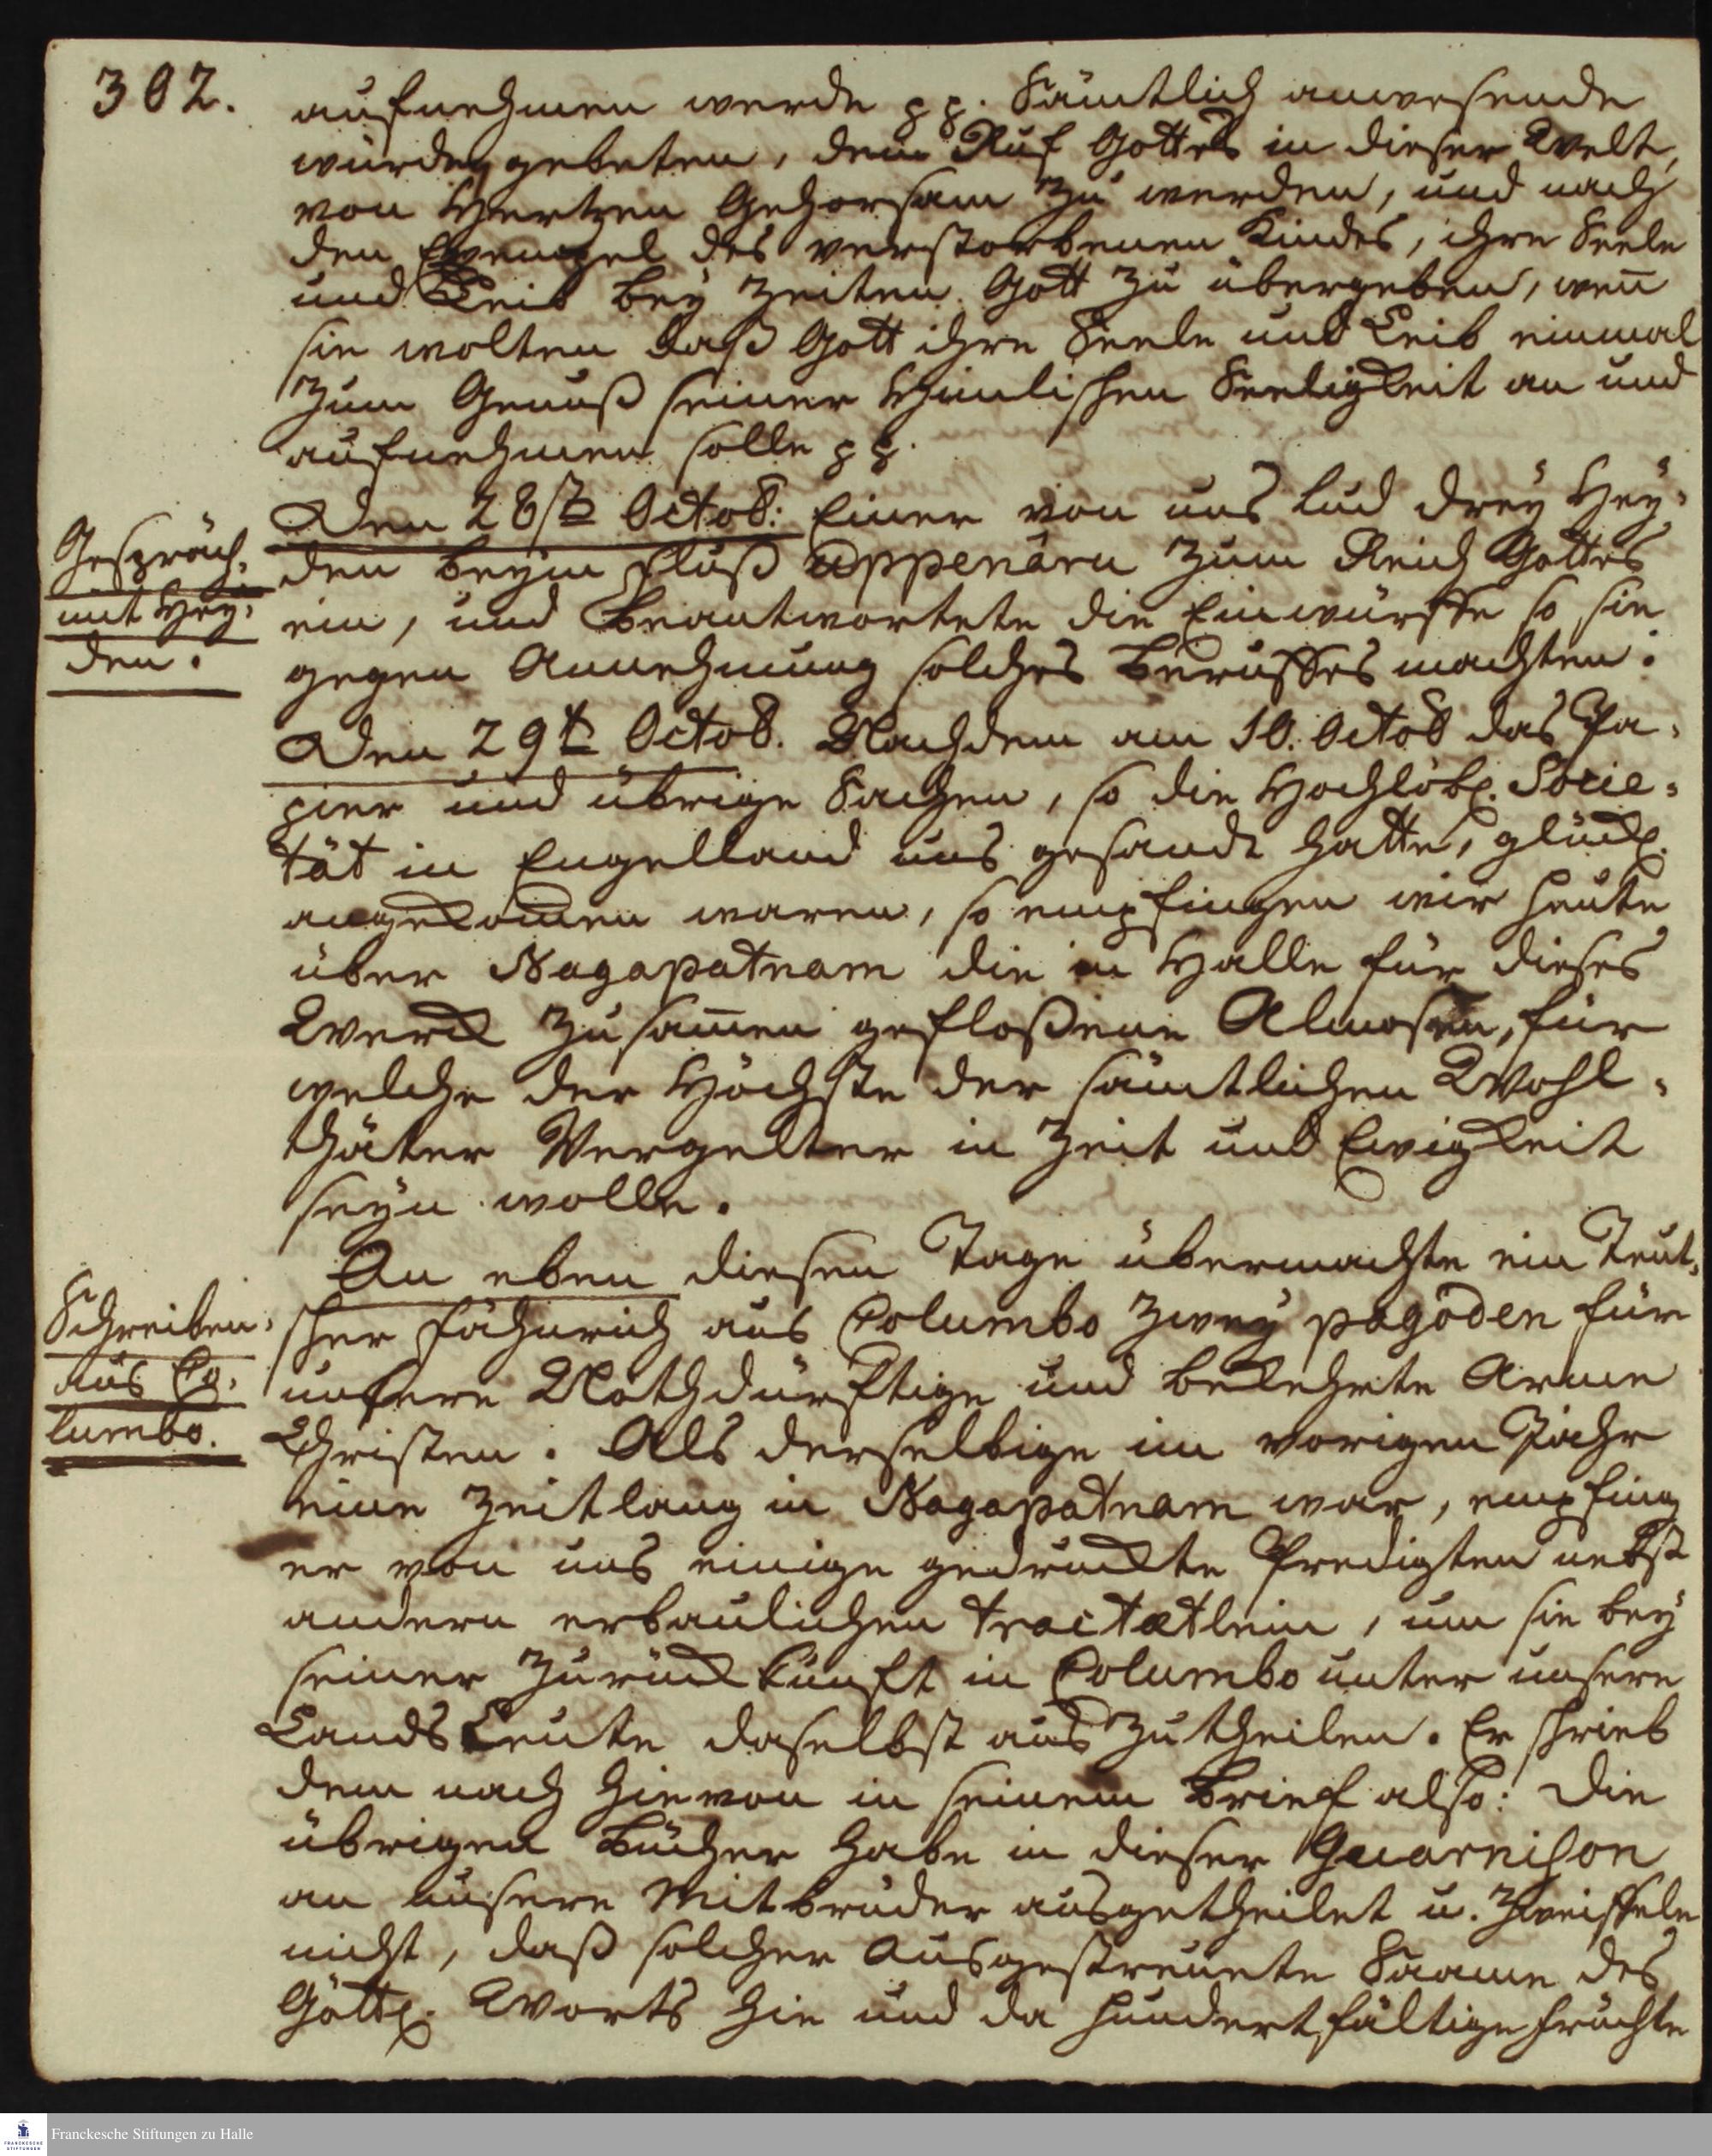 302.
aufnehmen werde pp. Sämtlich anwesende
würden gebeten, dem Ruf Gottes in dieser Welt,
von Hertzen Gehorsam zu werden, und nach
den Exempel des verstorbenen Kindes, ihre Seele
und Leib bey Zeiten Gott zu übergeben, weñ
sie wolten daß Gott ihre Seele und Leib einmal
zum Genuß seiner Himlischen Seeligkeit an und
aufnehmen solle pp.
Gespräch.
mit Hey-
den.
Den 28ste Octob: Einer von uns lud drey Hey-
den beym Fluß Uppenāru zum Reich Gottes
ein, und beantwortete die Einwürffe so sie
gegen Annehmung solches Beruffes machten.
Den 29te Octob. Nachdem am 10. Octob das Pa-
pier und übrige Sachen, so die Hochlöbl. Socie-
tät in Engelland uns gesandt hatte, glückl.
angekom̄en waren, so empfingen wir heute
über Nagapatnam die in Halle für dieses
Werck zusam̄en gefloßene Almosen, für
welche der Höchste der sämtlichen Wohl-
thäter Vergelter in Zeit und Ewigkeit
seyn wolle.
Schreiben
aus Co-
lumbo.
An eben diesen Tage übermachte ein Teut-
scher Fähnrich aus Columbo zwey pagoden für
unsere Nothdürftige und bekehrte Arme
Christen. Als derselbige im vorigen Jahr
eine Zeitlang in Nagapatnam war, empfing
er von uns einige gedruckte Predigten nebst
andern erbaulichen tractätlein, um sie bey
seiner Zurückkunft in Columbo unter unsere
Lands Leute daselbst aus zutheilen. Er schrieb
dem nach hievon in seinem Brief also: Die
übrigen Bücher habe in dieser Guarnison
an unsere Mitbrüder ausgetheilet u. zweiffele
nicht, daß solcher ausgestreuete Saame des
Göttl. Worts hie und da hundertfältige Früchte
Franckesche Stiftungen zu Halle